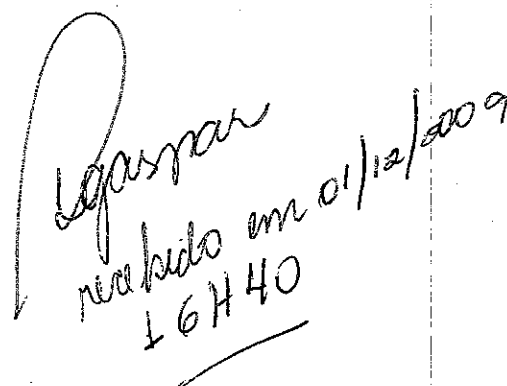 Lgaspar
recebido em 01/12/2009
16H40